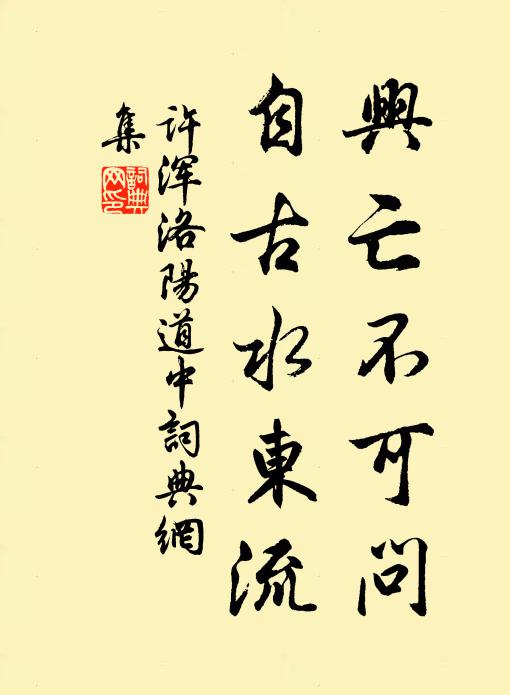 興亡不可問
自古水東流
许渾洛陽道中詞典網
集
詞典
网印